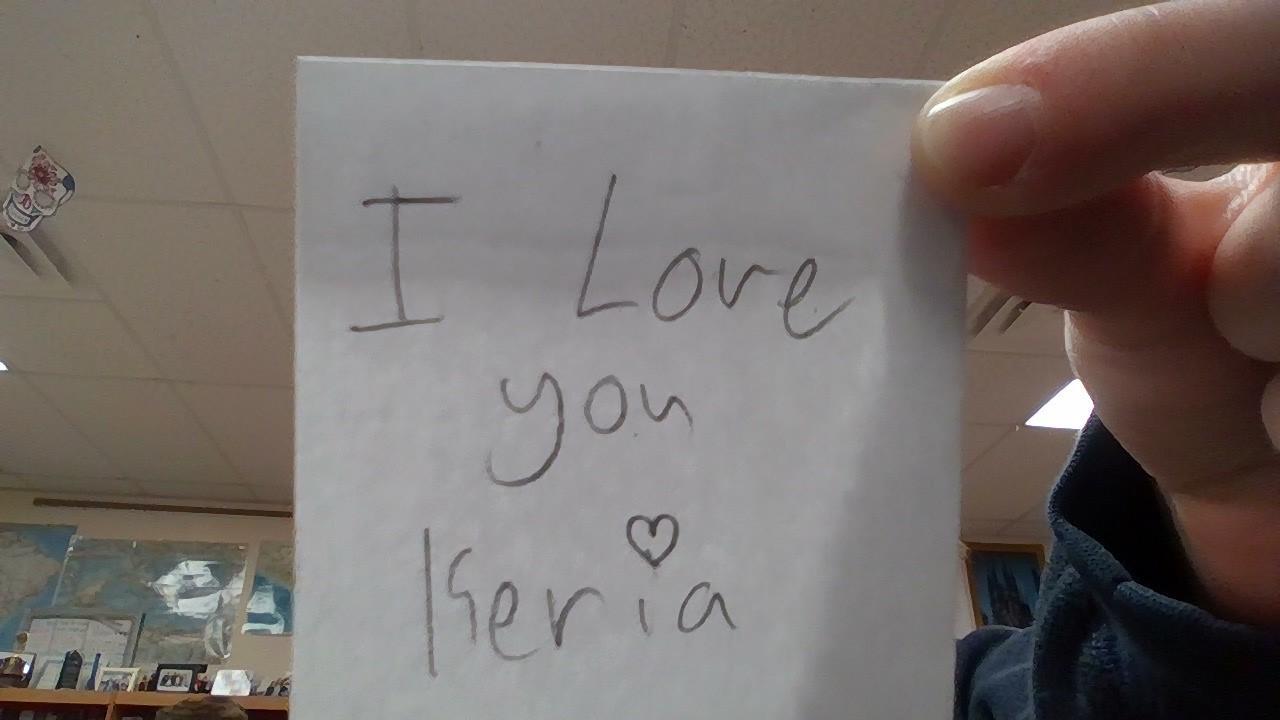 I Love
you
Keria